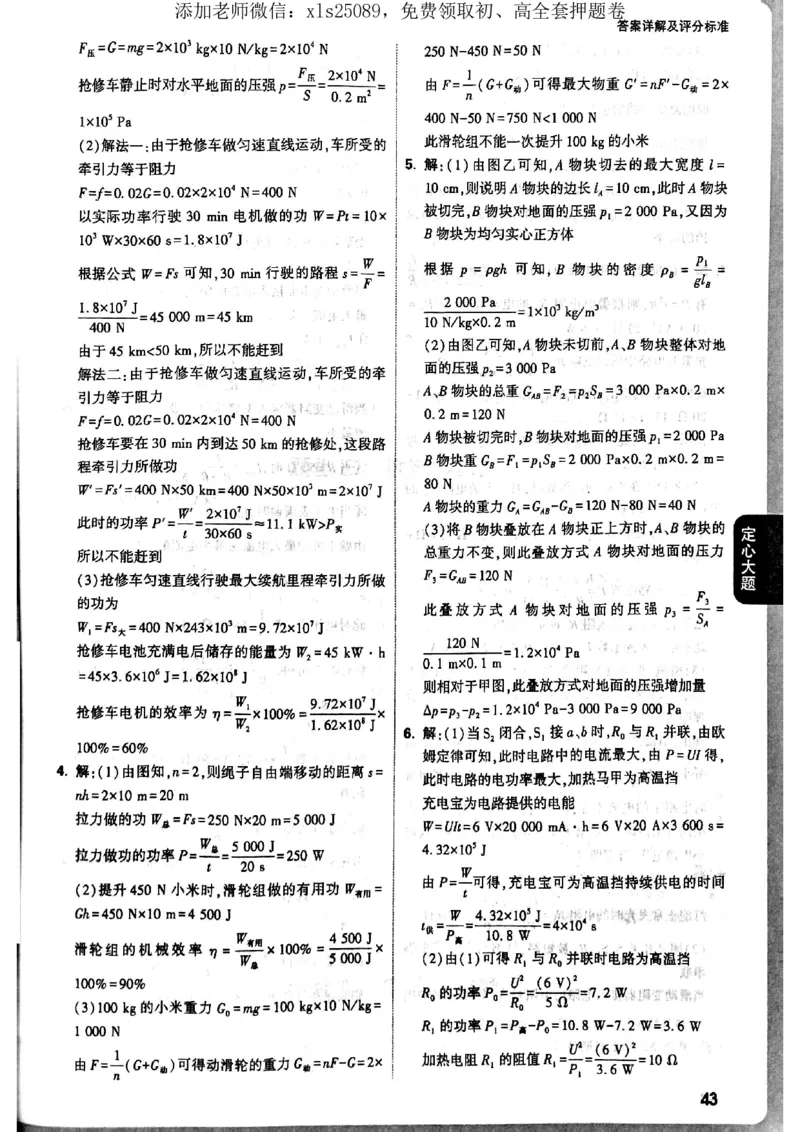 添加老师微信：xls25089，免费领取初、高全套押题卷
答案详解及评分标准
F压=G=mg=2×10³ kg×10 N/kg=2×10⁴ N
抢修车静止时对水平地面的压强p=F压/S=2×10⁴ N/0.2 m²=
1×10⁵ Pa
(2)解法一:由于抢修车做匀速直线运动,车所受的
牵引力等于阻力
F=f=0.02G=0.02×2×10⁴ N=400 N
以实际功率行驶 30 min 电机做的功 W=Pt=10×
10³ W×30×60 s=1.8×10⁷ J
根据公式 W=Fs 可知,30 min 行驶的路程 s=W/F=
1.8×10⁷ J/400 N=45 000 m=45 km
由于 45 km<50 km,所以不能赶到
解法二:由于抢修车做匀速直线运动,车所受的牵
引力等于阻力
F=f=0.02G=0.02×2×10⁴ N=400 N
抢修车要在 30 min 内到达 50 km 的抢修处,这段路
程牵引力所做功
W'=Fs'=400 N×50 km=400 N×50×10³ m=2×10⁷ J
此时的功率 P'=W'/t=2×10⁷ J/30×60 s≈11.1 kW>P实
所以不能赶到
(3)抢修车匀速直线行驶最大续航里程牵引力所做
的功为
W₁=Fs大=400 N×243×10³ m=9.72×10⁷ J
抢修车电池充满电后储存的能量为 W₂=45 kW·h
=45×3.6×10⁶ J=1.62×10⁸ J
抢修车电机的效率为 η=W₁/W₂×100%=9.72×10⁷ J/1.62×10⁸ J×
100%=60%
4. 解:(1)由图知,n=2,则绳子自由端移动的距离 s=
nh=2×10 m=20 m
拉力做的功 W总=Fs=250 N×20 m=5 000 J
拉力做功的功率 P=W总/t=5 000 J/20 s=250 W
(2)提升 450 N 小米时,滑轮组做的有用功 W有用=
Gh=450 N×10 m=4 500 J
滑轮组的机械效率 η=W有用/W总×100%=4 500 J/5 000 J×
100%=90%
(3)100 kg 的小米重力 G₀=mg=100 kg×10 N/kg=
1 000 N
由 F=1/n(G+G动)可得动滑轮的重力 G动=nF-G=2×
250 N-450 N=50 N
由 F=1/n(G+G动)可得最大物重 G'=nF'-G动=2×
400 N-50 N=750 N<1 000 N
此滑轮组不能一次提升 100 kg 的小米
5. 解:(1)由图乙可知,A 物块切去的最大宽度 l=
10 cm,则说明 A 物块的边长 lA=10 cm,此时 A 物块
被切完,B 物块对地面的压强 p₁=2 000 Pa,又因为
B 物块为均匀实心正方体
根据 p=ρgh 可知,B 物块的密度 ρB=p₁/glB=
2 000 Pa/10 N/kg×0.2 m=1×10³ kg/m³
(2)由图乙可知,A 物块未切前,A、B 物块整体对地
面的压强 p₂=3 000 Pa
A、B 物块的总重 GAB=F₂=p₂SB=3 000 Pa×0.2 m×
0.2 m=120 N
A 物块被切完时,B 物块对地面的压强 p₁=2 000 Pa
B 物块重 GB=F₁=p₁SB=2 000 Pa×0.2 m×0.2 m=
80 N
A 物块的重力 GA=GAB-GB=120 N-80 N=40 N
(3)将 B 物块叠放在 A 物块正上方时,A、B 物块的
总重力不变,则此叠放方式 A 物块对地面的压力
F₃=GAB=120 N
此叠放方式 A 物块对地面的压强 p₃=F₃/SA=
120 N/0.1 m×0.1 m=1.2×10⁴ Pa
则相对于甲图,此叠放方式对地面的压强增加量
Δp=p₃-p₂=1.2×10⁴ Pa-3 000 Pa=9 000 Pa
6. 解:(1)当 S₂ 闭合,S₁ 接 a、b 时,R₀ 与 R₁ 并联,由欧
姆定律可知,此时电路中的电流最大,由 P=UI 得,
此时电路的电功率最大,加热马甲为高温挡
充电宝为电路提供的电能
W=UIt=6 V×20 000 mA·h=6 V×20 A×3 600 s=
4.32×10⁵ J
由 P=W/t可得,充电宝可为高温挡持续供电的时间
t供=W/P高=4.32×10⁵ J/10.8 W=4×10⁴ s
(2)由(1)可得 R₁ 与 R₀ 并联时电路为高温挡
R₀ 的功率 P₀=U²/R₀=(6 V)²/5 Ω=7.2 W
R₁ 的功率 P₁=P高-P₀=10.8 W-7.2 W=3.6 W
加热电阻 R₁ 的阻值 R₁=U²/P₁=(6 V)²/3.6 W=10 Ω
定心大题
43